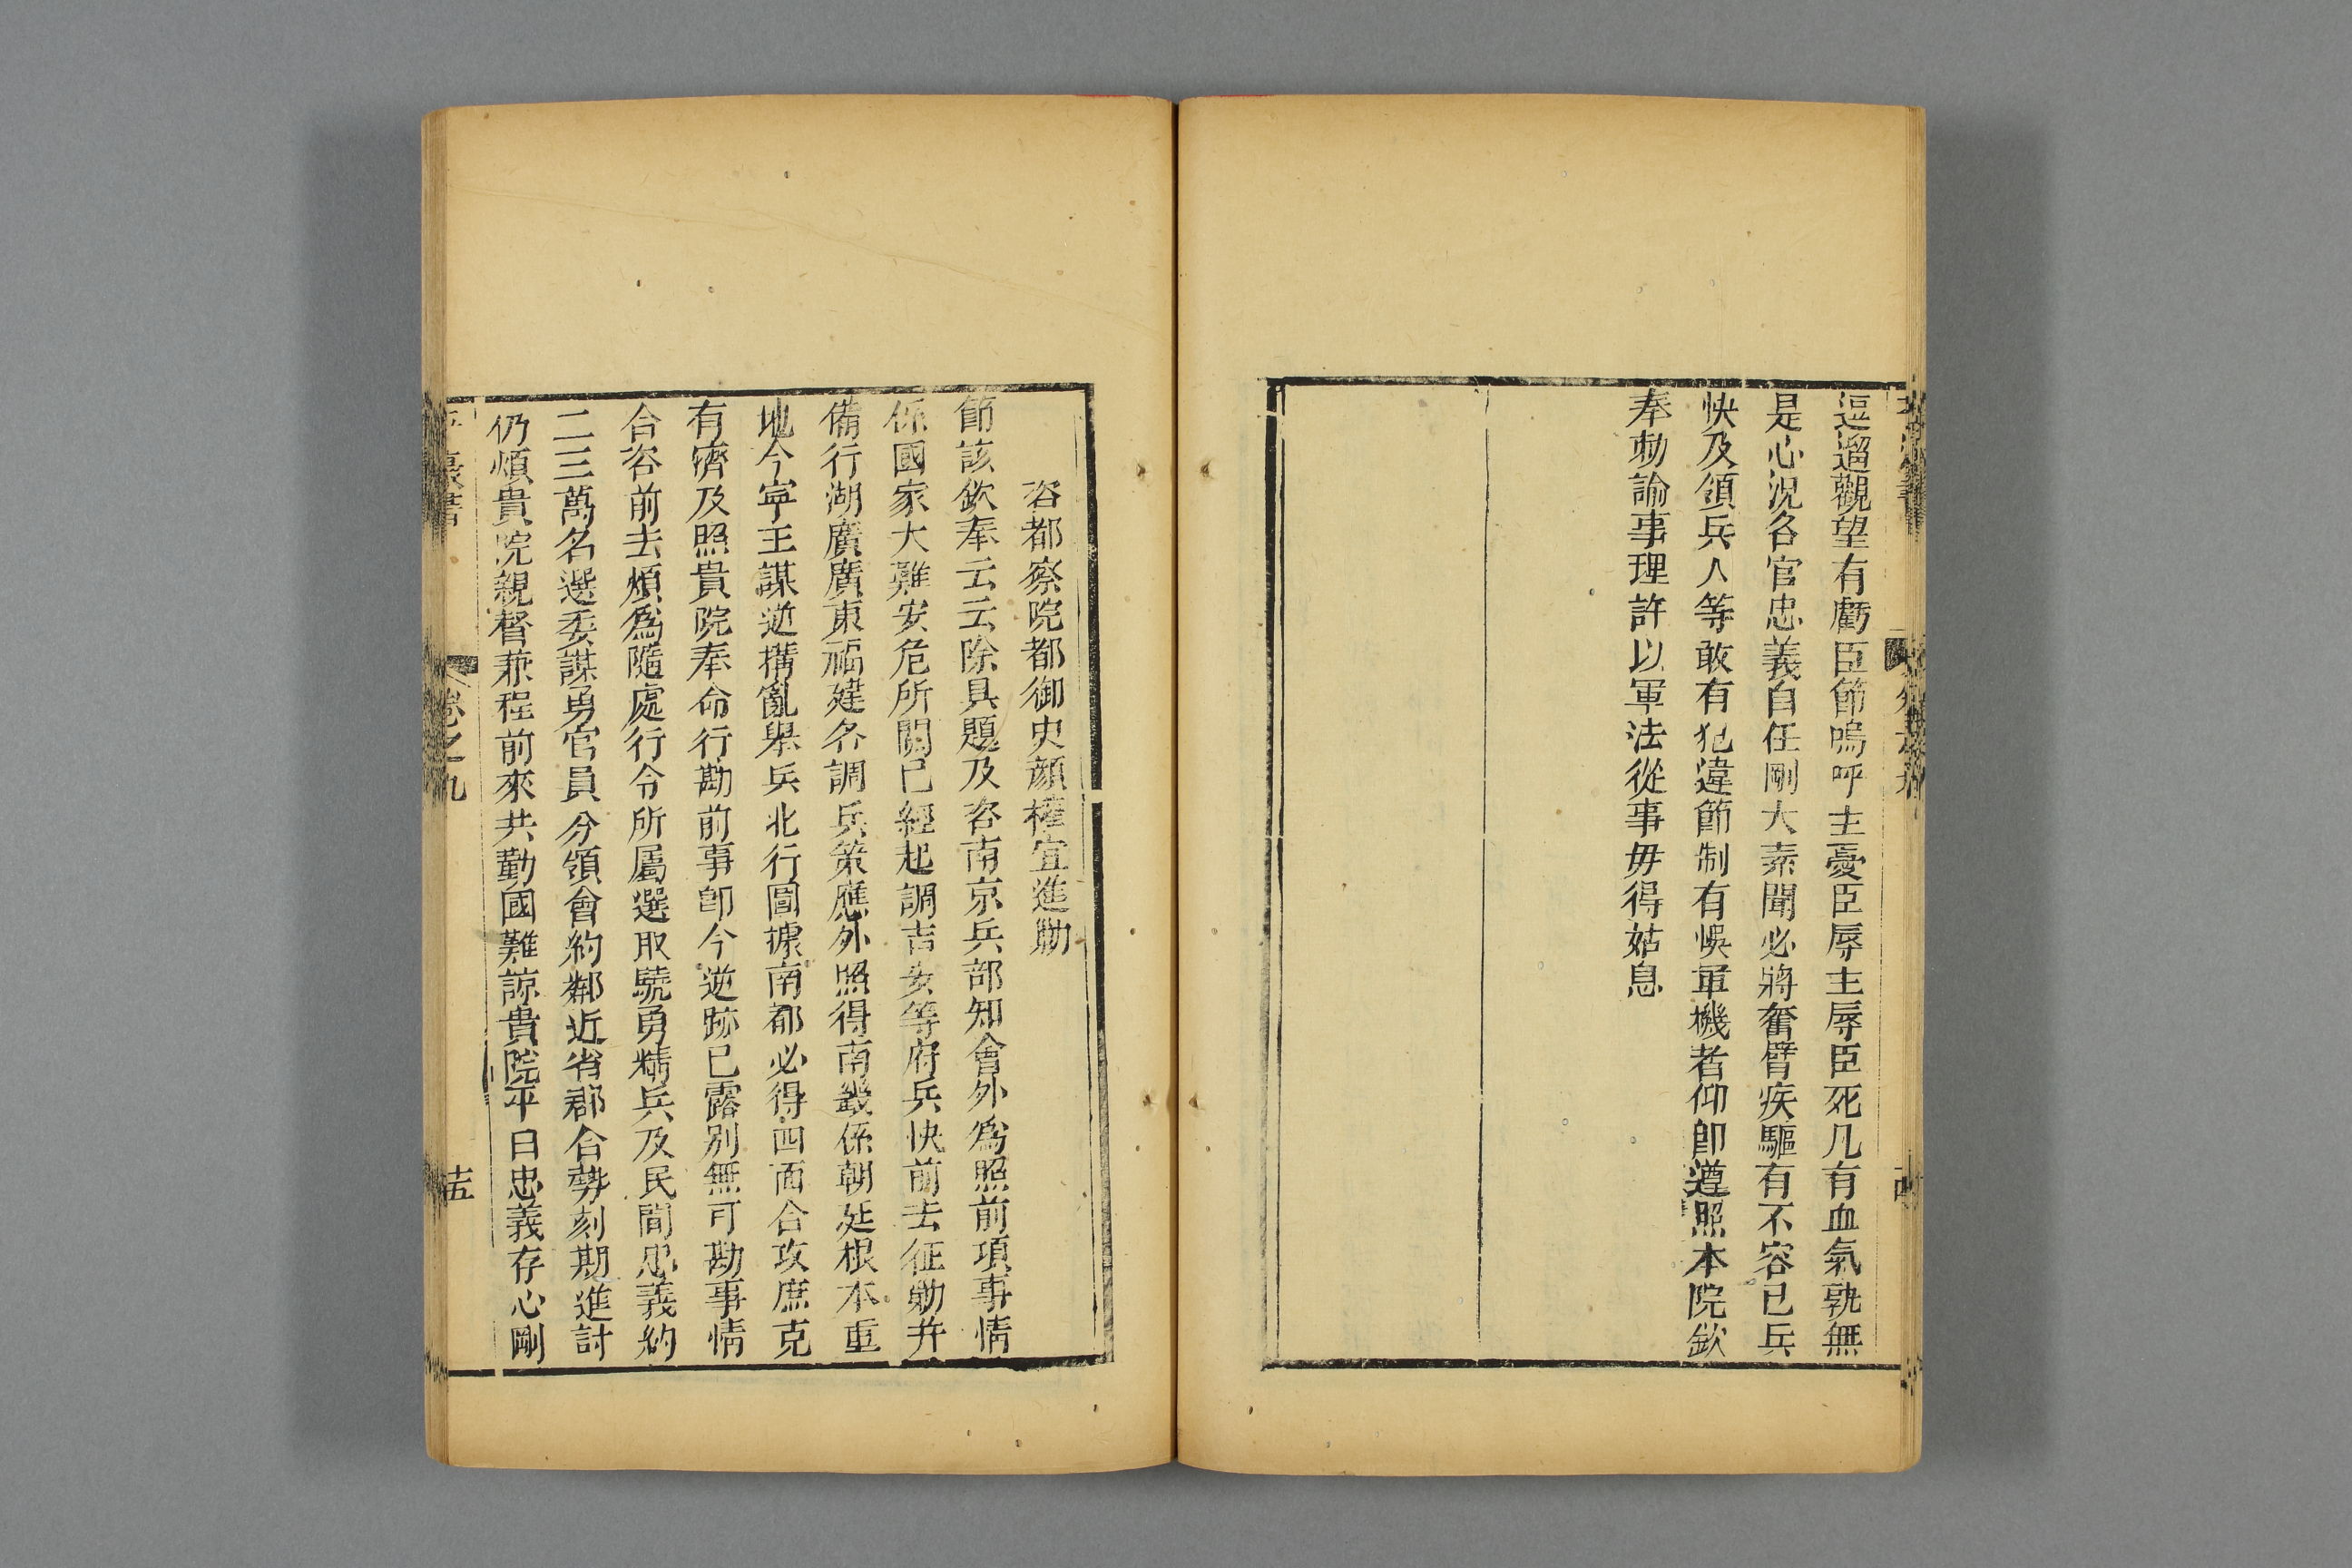 逗遛觀望有虧臣節嗚呼主憂臣辱主辱臣死凡有血氣孰無
是心況各官忠義自任剛大素聞必將奮臂疾驅有不容已兵
快及領兵人等敢有犯違節制有悞軍機者仰卽遵照本院欽
奉勅諭事理許以軍法從事毋得姑息
咨都察院都御史顔權宜進勦
節該欽奉云云除具題及咨南京兵部知會外爲照前項事情
係國家大難安危所關已經起調吉安等府兵快前去征勦并
備行湖廣廣東福建各調兵策應外照得南畿係朝廷根本重
地今寧王謀逆搆亂舉兵北行圖據南都必得四面合攻庶克
有濟及照貴院奉命行勘前事卽今逆跡已露別無可勘事情
合咨前去煩爲隨處行令所屬選取驍勇精兵及民間忠義約
二三萬名選委謀勇官員分領會約鄰近省郡合勢刻期進討
仍煩貴院親督兼程前來共勤國難諒貴院平日忠義存心剛
卷之九
十五